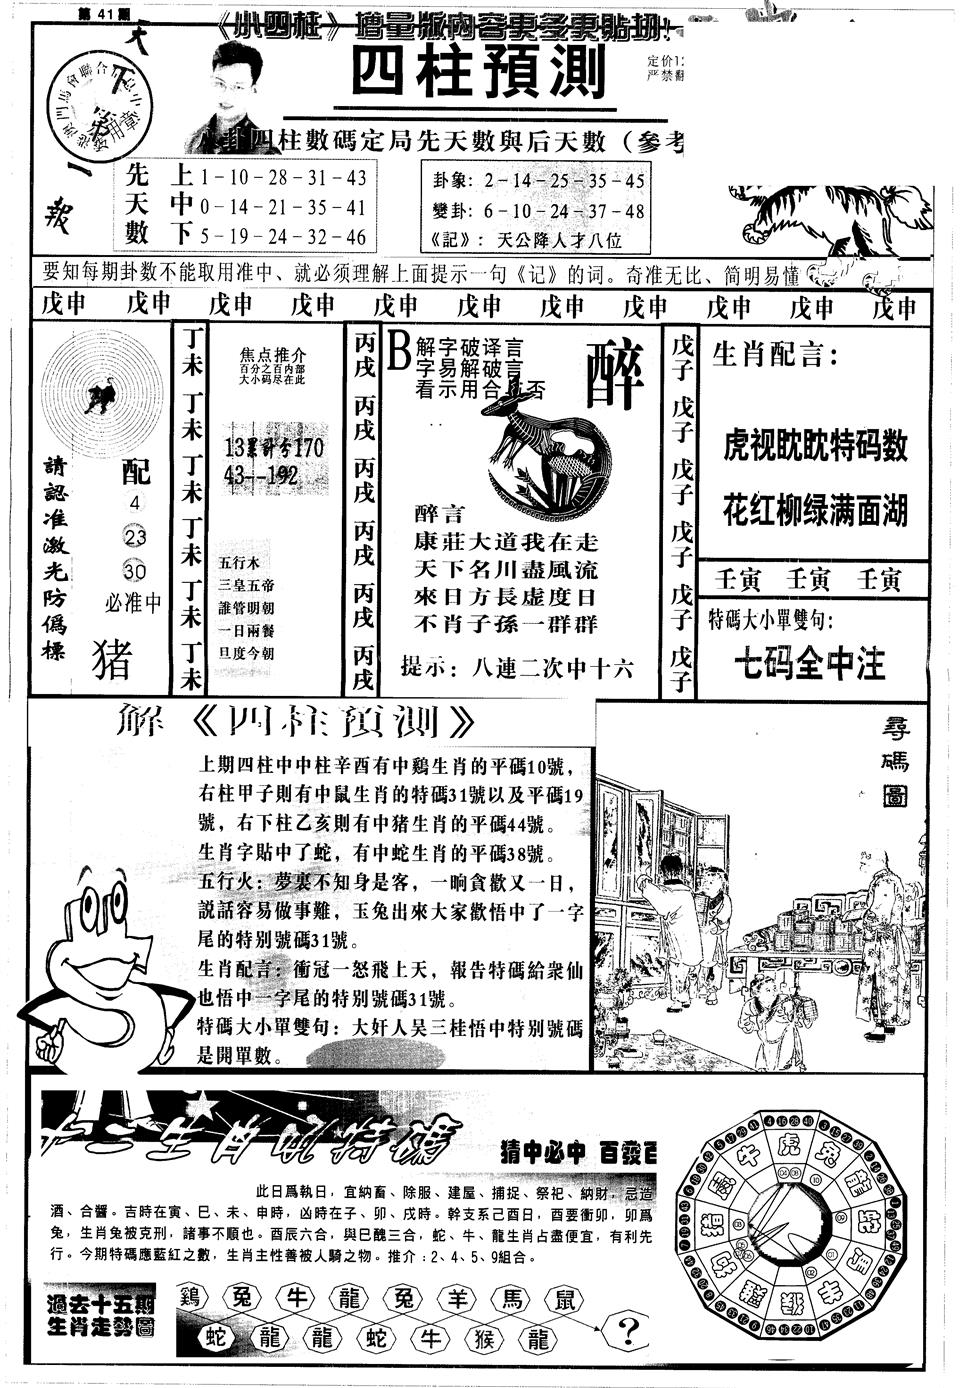 第 41 期
《小四柱》增量版內容更多更貼切!
四柱預測
定价12
严禁翻
天
下
第
一
報
卦四柱數碼定局先天數與后天數（參考
先天數
上1－10－28－31－43
中0－14－21－35－41
下5－19－24－32－46
卦象: 2－14－25－35－45
變卦: 6－10－24－37－48
《記》: 天公降人才八位
要知每期卦数不能取用准中、就必须理解上面提示一句《记》的词。奇准无比、简明易懂
戊申 戊申 戊申 戊申 戊申 戊申 戊申 戊申 戊申 戊申 戊申
請認准激光防偽標
配
4
23
30
必准中
猪
丁未 丁未 丁未 丁未 丁未 丁未
焦点推介
百分之百内部
大小码尽在此
13累計兮170
43--192
五行木
三皇五帝
誰管明朝
一日兩餐
旦度今朝
丙戌 丙戌 丙戌 丙戌 丙戌 丙戌
B
解字破译言
字易解破言
看示用合否
醉
醉言
康莊大道我在走
天下名川盡風流
來日方長虛度日
不肖子孫一群群
提示: 八連二次中十六
戊子 戊子 戊子 戊子 戊子 戊子
生肖配言:
虎视眈眈特码数
花红柳绿满面湖
壬寅 壬寅 壬寅
特碼大小單雙句:
七码全中注
解《四柱預測》
上期四柱中中柱辛酉有中鷄生肖的平碼10號，
右柱甲子則有中鼠生肖的特碼31號以及平碼19
號，右下柱乙亥則有中猪生肖的平碼44號。
生肖字貼中了蛇，有中蛇生肖的平碼38號。
五行火: 夢裏不知身是客，一晌貪歡又一日，
說話容易做事難，玉兔出來大家歡悟中了一字
尾的特别號碼31號。
生肖配言: 衝冠一怒飛上天，報告特碼給衆仙
也悟中一字尾的特别號碼31號。
特碼大小單雙句: 大奸人吴三桂悟中特别號碼
是開單數。
尋碼圖
猜中必中 百發百
此日爲執日，宜納畜、除服、建屋、捕捉、祭祀、納財，忌造
酒、合醬。吉時在寅、巳、未、申時，凶時在子、卯、戌時。幹支系己酉日，酉要衝卯，卯爲
兔，生肖兔被克刑，諸事不順也。酉辰六合，與巳醜三合，蛇、牛、龍生肖占盡便宜，有利先
行。今期特碼應藍紅之數，生肖主性善被人騎之物。推介: 2、4、5、9組合。
過去十五期
生肖走勢圖
鷄 兔 牛 龍 兔 羊 馬 鼠
蛇 龍 龍 蛇 牛 猴 龍 ?
虎 兔 龍 蛇 馬 羊 猴 鷄 牛